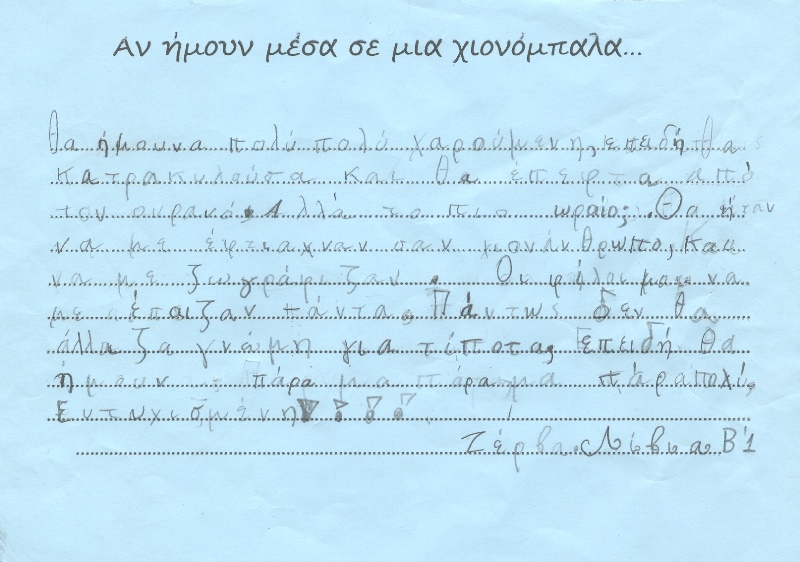 Αν ήμουν μέσα σε μια χιονόμπαλα...
Θα ήμουνα πολύ πολύ χαρούμενη, επειδή θα
κατρακυλούσα και θα επευτα από
τον ουρανό. Αλλά το πιο ωραίο; Θα ήταν
να με έφτιαχναν σαν χιονάνθρωπο, και
να με ζωγράφιζαν. Οι φίλοι μου να
με έπαιζαν πάντα. Πάντως δεν θα
άλλαζα γνώμη για τίποτα; Επειδή θα
ήμουν πάρα μα πάρα μα πάραπολί,
Εντυχισμένη!!!!
Ζέρβα Λίβια Β'1